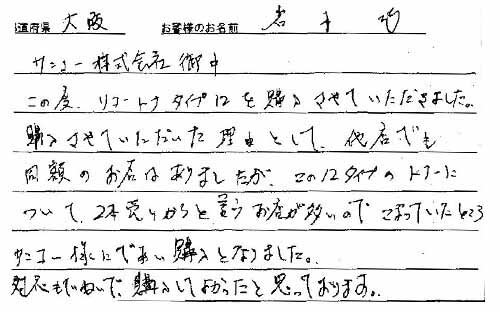 道府県 大阪 お客様のお名前 岩
サンコー株式会社 御中
この度、リコートナータイプ12を購入させていただきました。
購入させていただいた理由として、他店でも
同額のお店はありましたが、この12タイプのトナーに
ついて、2本売りからと言うお店が多いので こまっていたところ
サンコー様にであい購入となりました。
対応もていねいで、購入してよかったと思っております。